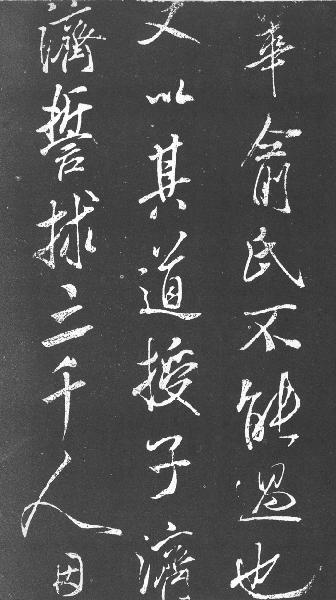 華俞氏不能過也
又以其道授子濟
濟誓捄三千人因